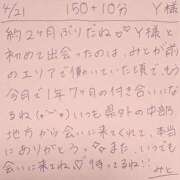 4/21 150+10分 Y様
約2ヶ月ぶりだね♡♡ Y様と
初めて出会ったのは、みとが前
のエリアで働いていた頃で、もう
今月で1年7ヶ月の付き合いにな
るね(о´∀`о) いつも県外の中部
地方から会いに来てくれて、本当
にありがとう。♡♡また、いつでも
会いに来てね♡待ってるね!!
みと